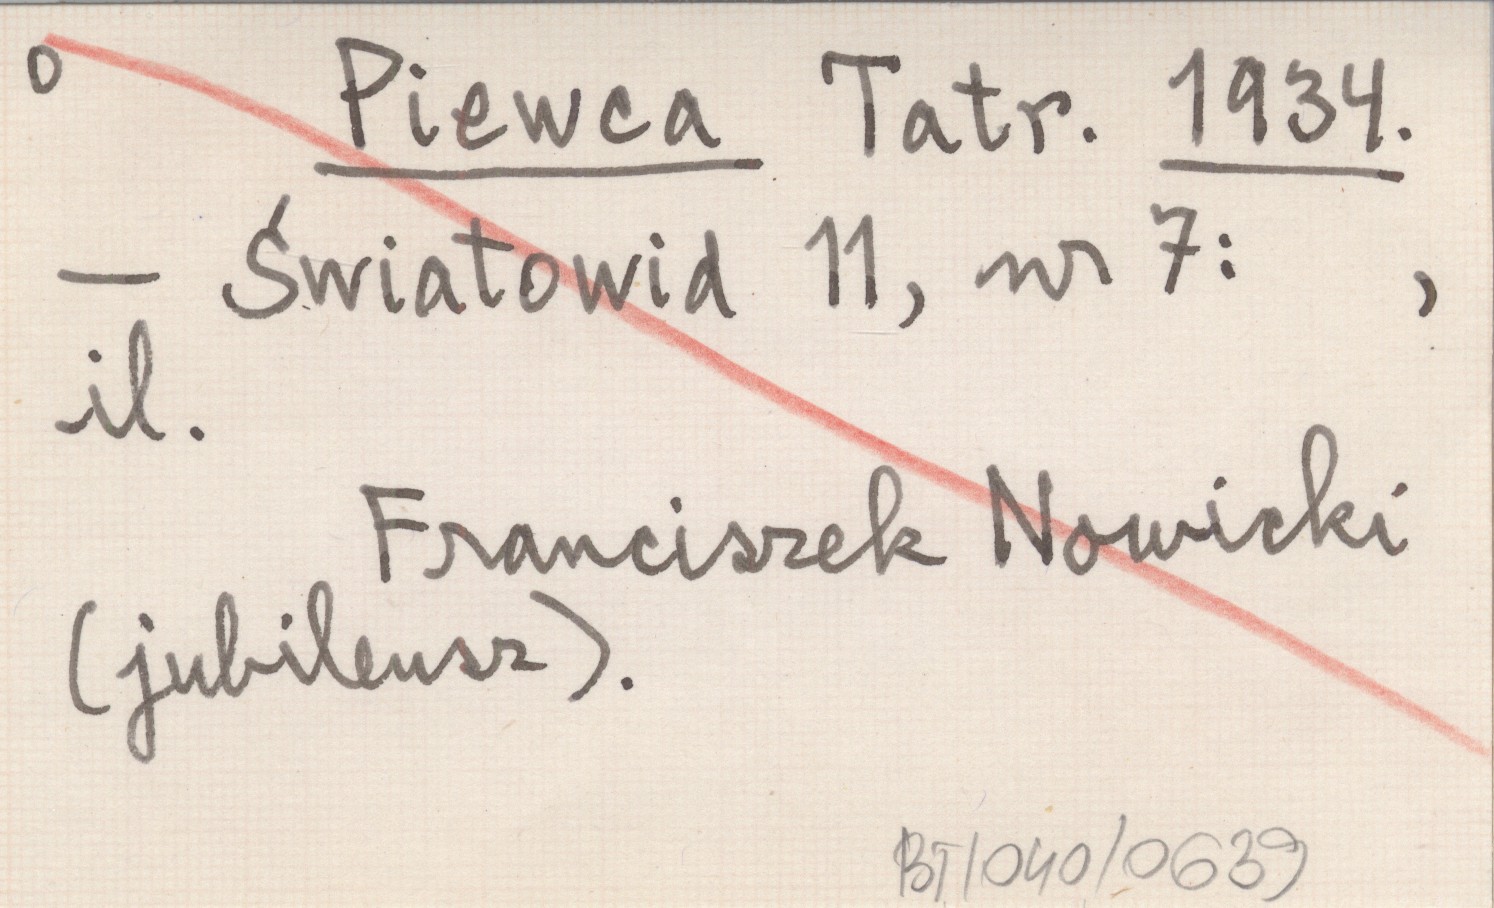 o Piewca Tatr. 1934.
— Światowid 11, nr 7: ,
il.
Franciszek Nowicki
(jubileusz).
BT/040/0639